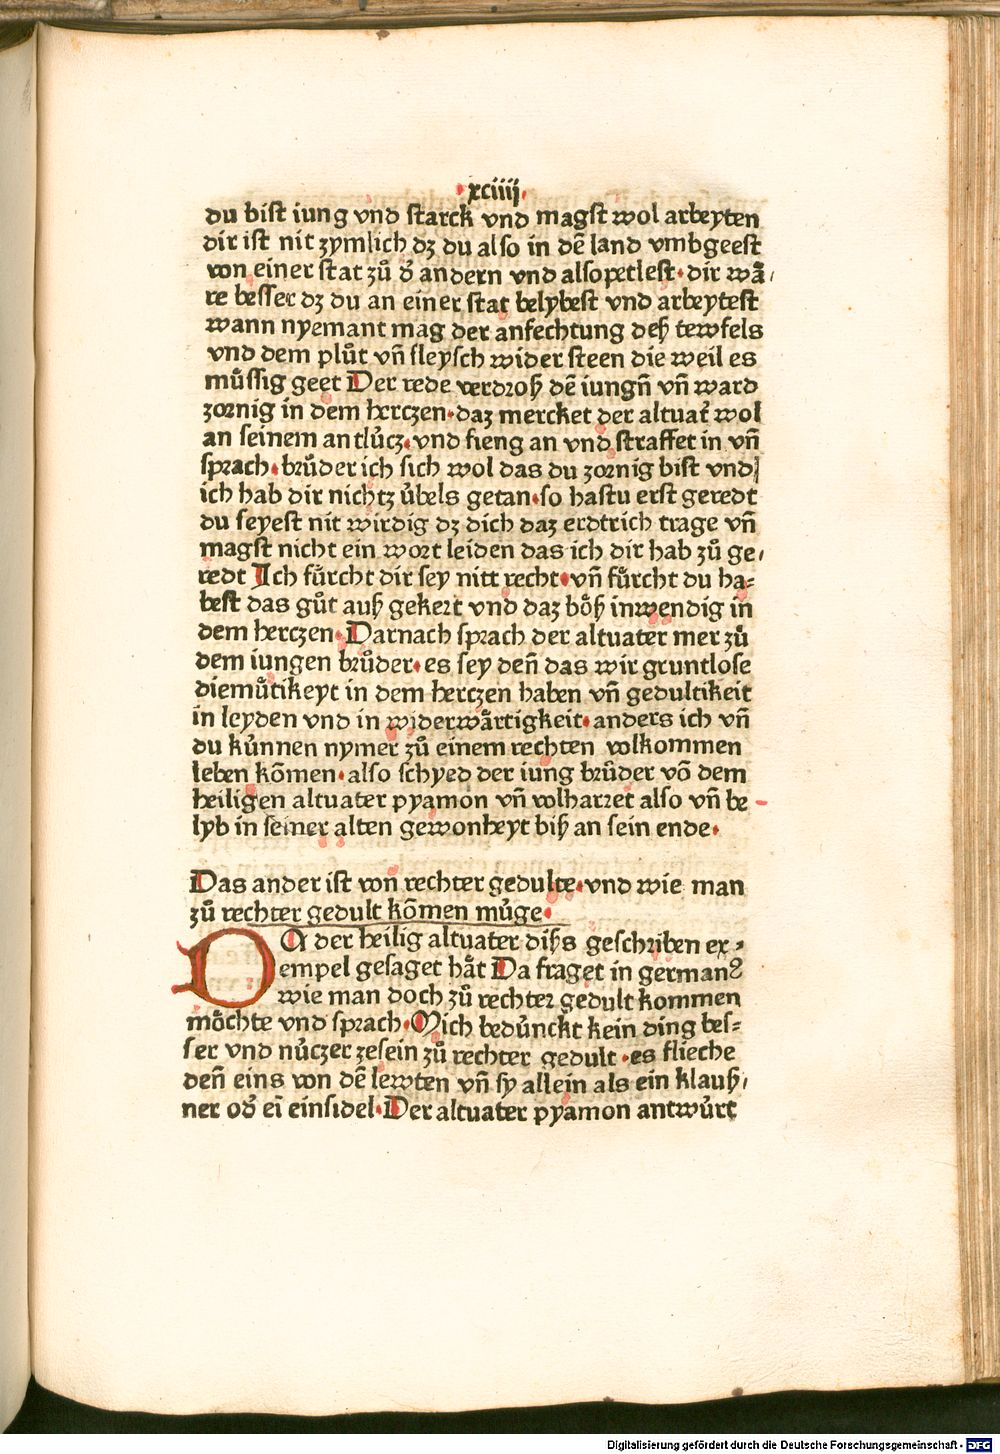 ·xciiij·
du bist iung vnd starck vnd magst wol arbeyten
dir ist nit zymlich dz du also in dē land vmbgeest
von einer stat zů d̕ andern vnd also petlest· dir wå/
re besser dz du an einer stat belybest vnd arbeytest
wann nyemant mag der anfechtung deß tewfels
vnd dem plůt vn̄ fleysch wider steen die weil es
můssig geet Der rede verdroß dē iungn̄ vn̄ ward
zornig in dem herczen· daz mercket der altuat̕ wol
an seinem antlůcz· vnd fieng an vnd straffet in vn̄
sprach· brůder ich sich wol das du zornig bist vnd
ich hab dir nichtz ůbels getan· so hastu erst geredt
du seyest nit wirdig dz dich daz erdtrich trage vn̄
magst nicht ein wort leiden das ich dir hab zů ge/
redt Ich fůrcht dir sey nitt recht· vn̄ fůrcht du ha=
best das gůt auß gekert vnd daz bôß inwendig in
dem herczen· Darnach sprach der altuater mer zů
dem iungen brůder· es sey den̄ das wir gruntlose
diemůtikeyt in dem herczen haben vn̄ gedultikeit
in leyden vnd in widerwårtigkeit· anders ich vn̄
du kůnnen nymer zů einem rechten volkommen
leben kōmen· also schyed der iung brůder vō dem
heiligen altuater pyamon vn̄ volharret also vn̄ be
lyb in seiner alten gewonheyt biß an sein ende·
Das ander ist von rechter gedulte· vnd wie man
zů rechter gedult kōmen můge·
DA der heilig altuater dißs geschriben ex=
empel gesaget håt Da fraget in germanꝰ
wie man doch zů rechter gedult kommen
môchte vnd sprach· Mich bedůnckt kein ding bes=
ser vnd nůczer zesein zů rechter gedult· es flieche
den̄ eins von dē lewten vn̄ sy allein als ein klauß/
ner od̕ eī einsidel· Der altuater pyamon antwůrt
Digitalisierung gefördert durch die Deutsche Forschungsgemeinschaft - DFG